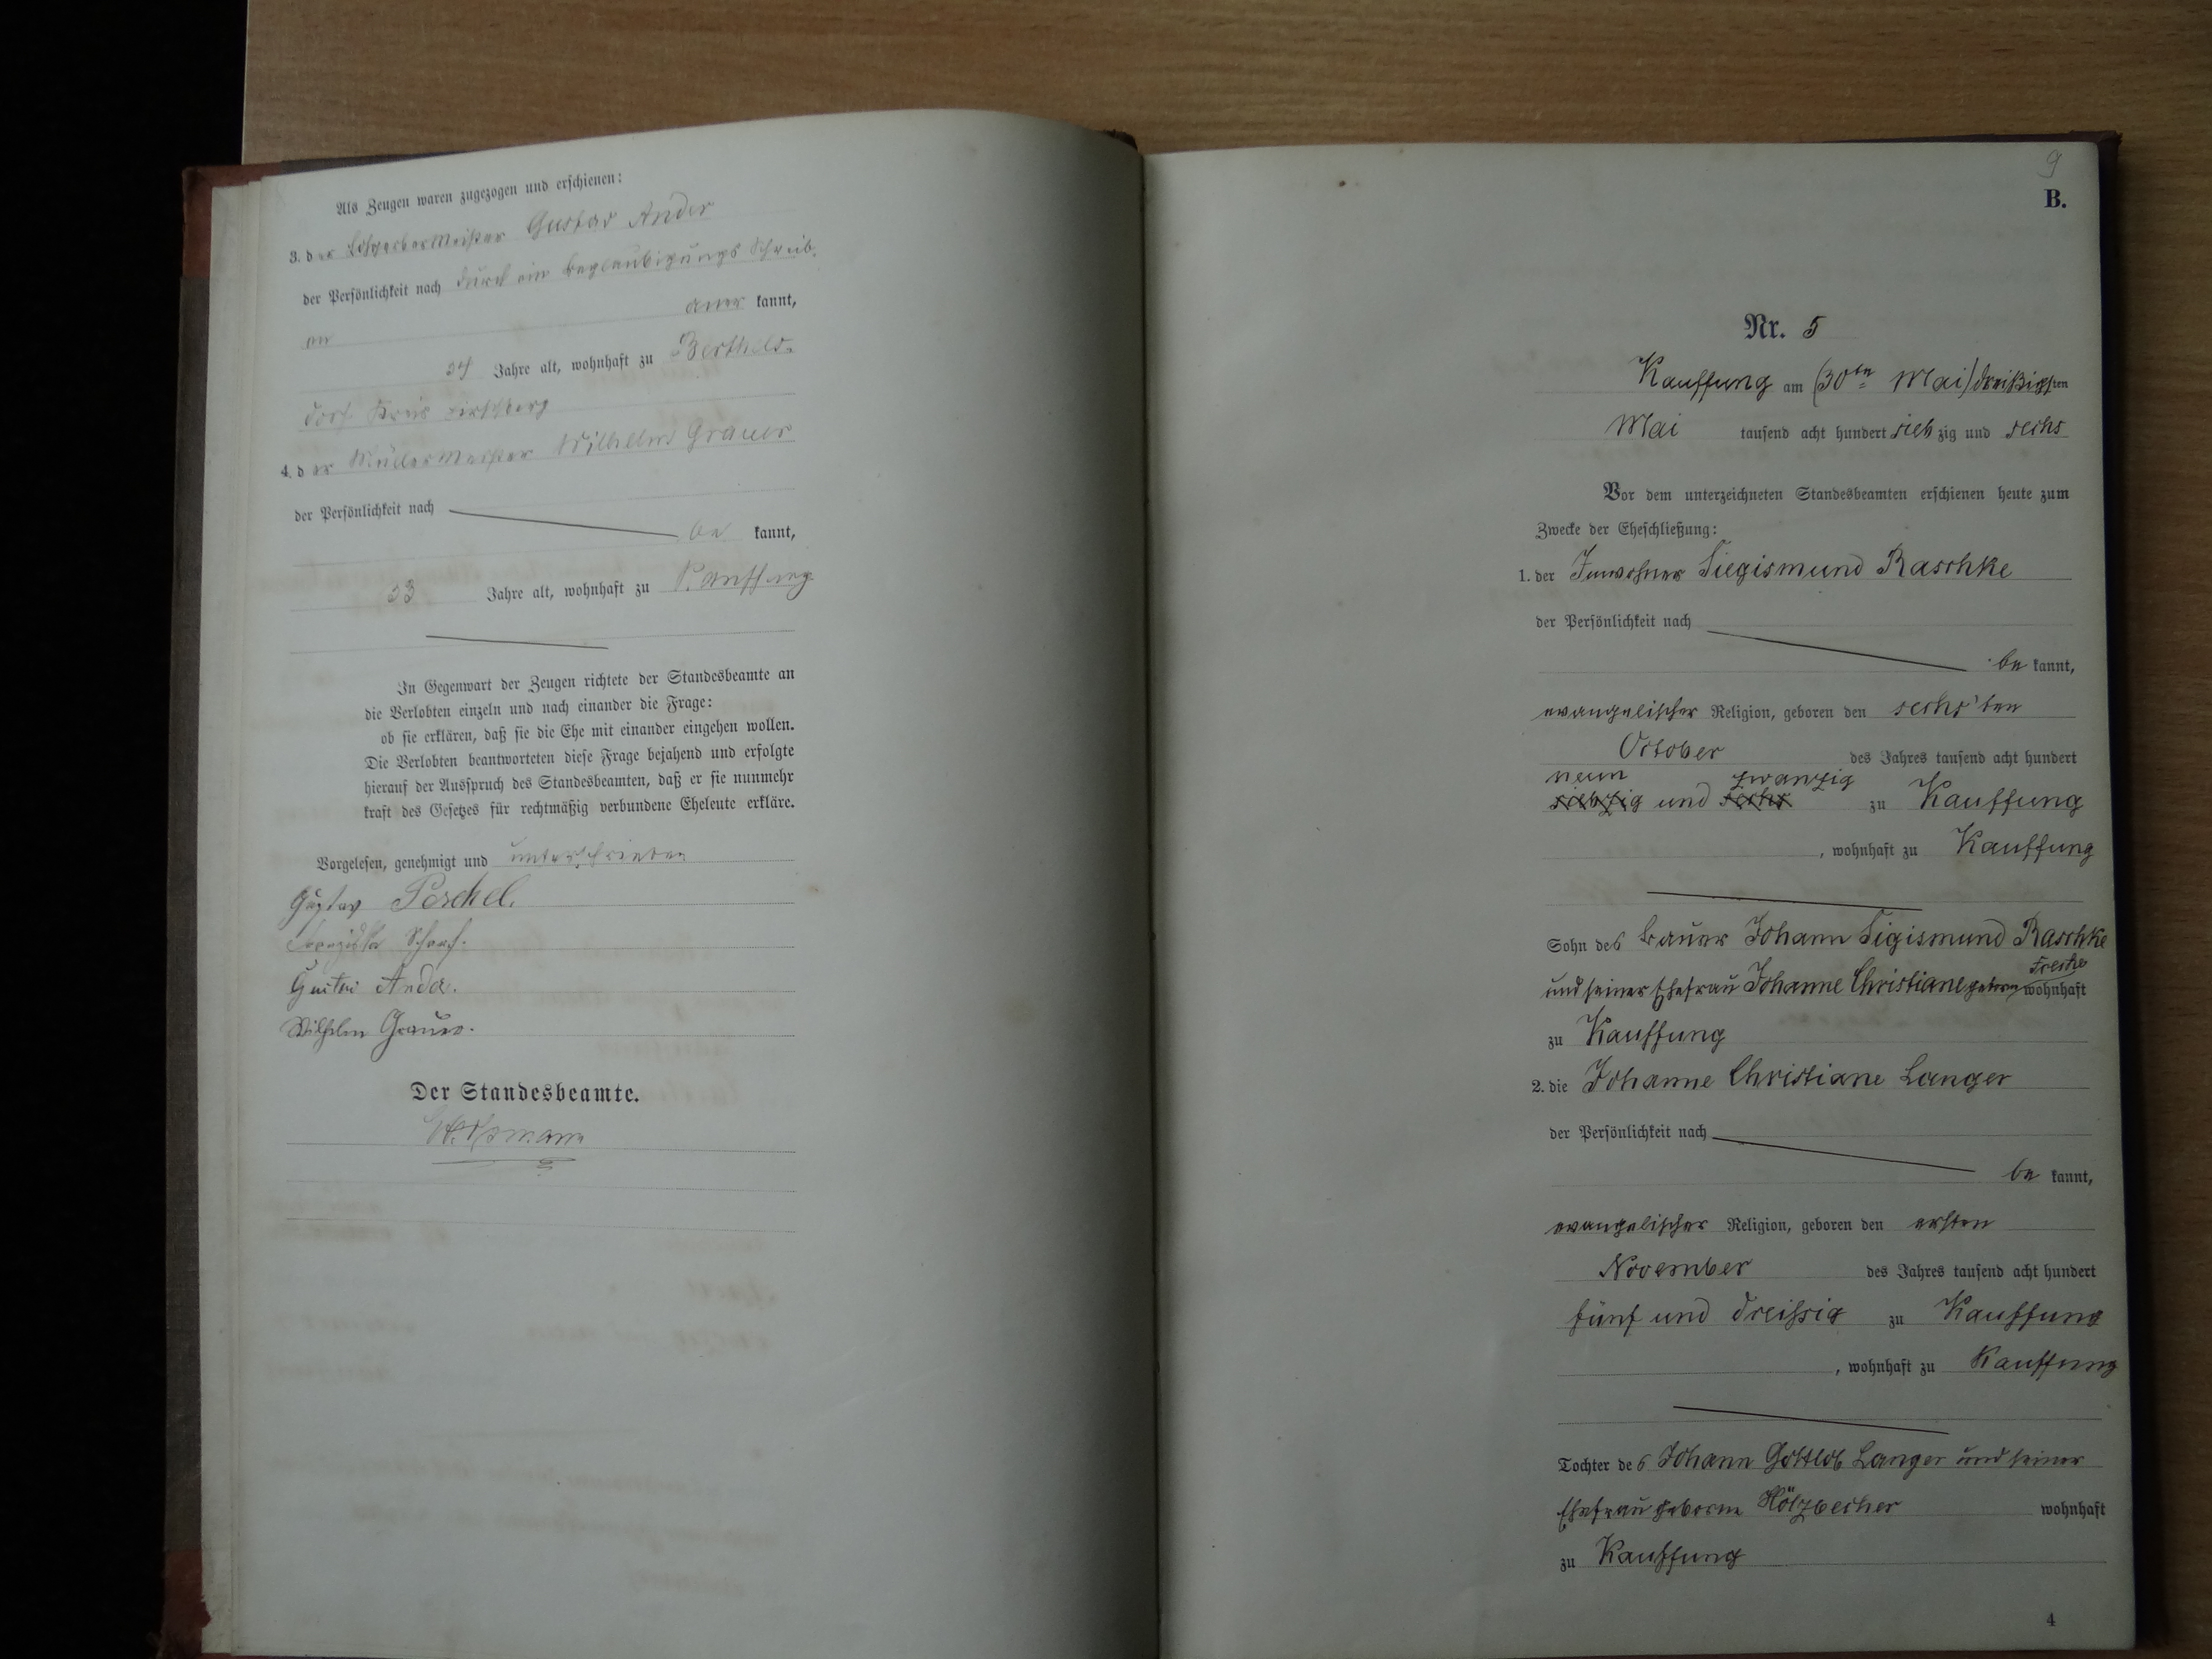 Als Zeugen waren zugezogen und erschienen:
3. der Lohgerbermeister Gustav Ander
der Persönlichkeit nach durch ein Beglaubigungs Schreib.
en aner kannt,
34 Jahre alt, wohnhaft zu Berthels-
dorf Kreis Hirschberg
4. der Müllermeister Wilhelm Grauer
der Persönlichkeit nach
be kannt,
33 Jahre alt, wohnhaft zu Kauffung
In Gegenwart der Zeugen richtete der Standesbeamte an
die Verlobten einzeln und nach einander die Frage:
ob sie erklären, daß sie die Ehe mit einander eingehen wollen.
Die Verlobten beantworteten diese Frage bejahend und erfolgte
hierauf der Ausspruch des Standesbeamten, daß er sie nunmehr
kraft des Gesetzes für rechtmäßig verbundene Eheleute erkläre.
Vorgelesen, genehmigt und unterschrieben
Gustav Peschel.
Gustav Ander.
Wilhelm Grauer.
Der Standesbeamte.
9
B.
Nr. 5
Kauffung am (30ten Mai) dreißigsten
Mai tausend acht hundert siebzig und sechs
Vor dem unterzeichneten Standesbeamten erschienen heute zum
Zwecke der Eheschließung:
1. der Inwohner Siegismund Raschke
der Persönlichkeit nach
be kannt,
evangelischer Religion, geboren den sechs'ten
October des Jahres tausend acht hundert
neun zwanzig
siebzig und sechs zu Kauffung
, wohnhaft zu Kauffung
Sohn des Bauer Johann Sigismund Raschke
und seiner Ehefrau Johanne Christiane geborn wohnhaft
zu Kauffung
2. die Johanne Christiane Langer
der Persönlichkeit nach
be kannt,
evangelischer Religion, geboren den ersten
November des Jahres tausend acht hundert
fünf und dreissig zu Kauffung
, wohnhaft zu Kauffung
Tochter des Johann Gottlob Langer und seiner
Ehefrau geborne Hölzbecher wohnhaft
zu Kauffung
4